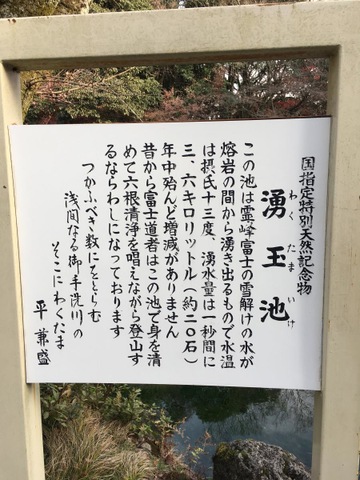 国指定特別天然記念物
わく たま いけ
湧玉池
この池は霊峰富士の雪解けの水が
熔岩の間から湧き出るもので水温
は摂氏十三度、湧水量は一秒間に
三、六キロリットル（約二〇石）
年中殆んど増減がありません
昔から富士道者はこの池で身を清
めて六根清浄を唱えながら登山す
るならわしになっております
つかふべき数にをとらむ
浅間なる御手洗川の
そこにわくたま
平兼盛